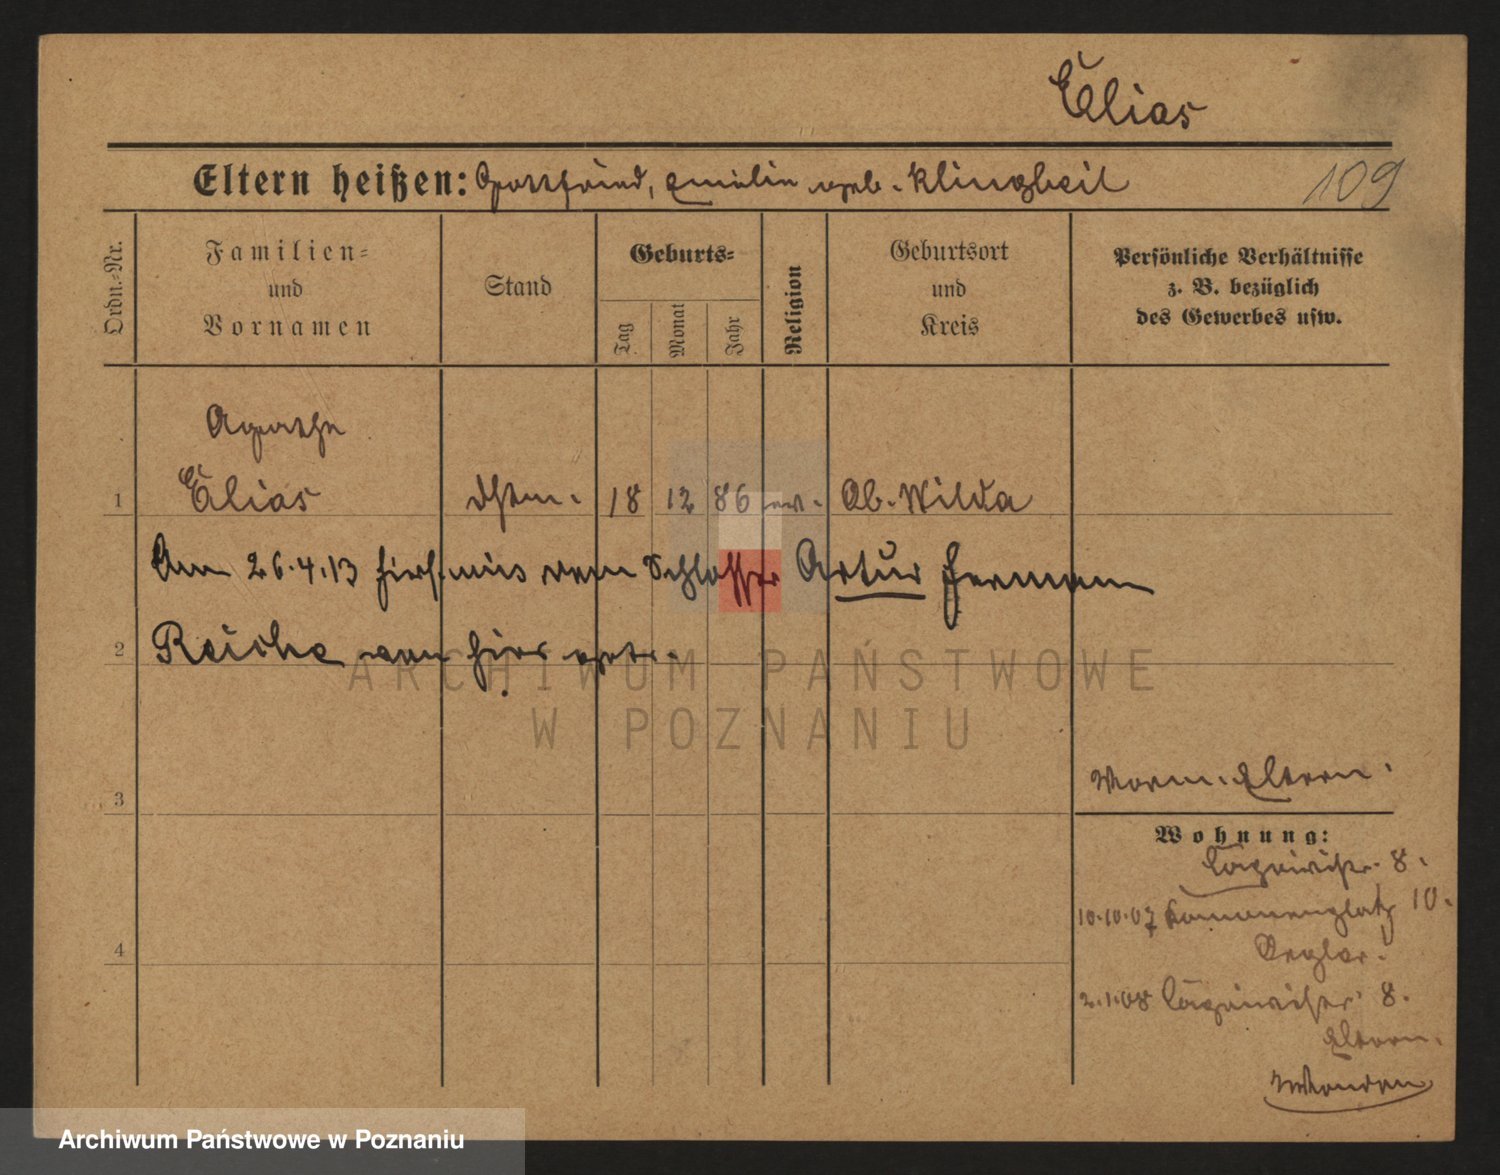 Elias
Eltern heißen: Gottfried, Emilie geb. Klingbeil
109
Ordn.-Nr.
Familien-
und
Vornamen
Stand
Geburts-
Tag
Monat
Jahr
Religion
Geburtsort
und
Kreis
Persönliche Verhältnisse
z. B. bezüglich
des Gewerbes usw.
Agathe
1 Elias 18 12 86 ev. Ob. Wilda
Am 26.4.13 hierf. mit dem Schlosser Artur Hermann
2 Reiche von hier getr.
3
Eltern.
Wohnung:
8.
10.10.07 10.
4
2.1.08 8.
Eltern.
ARCHIWUM PAŃSTWOWE
W POZNANIU
Archiwum Państwowe w Poznaniu